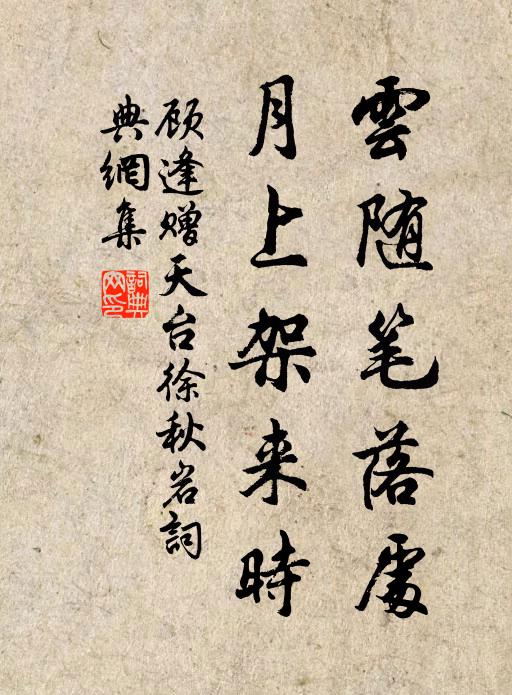 雲随笔落處
月上架来時
顾逢赠天台徐秋岩詞
典網集
詞典网印